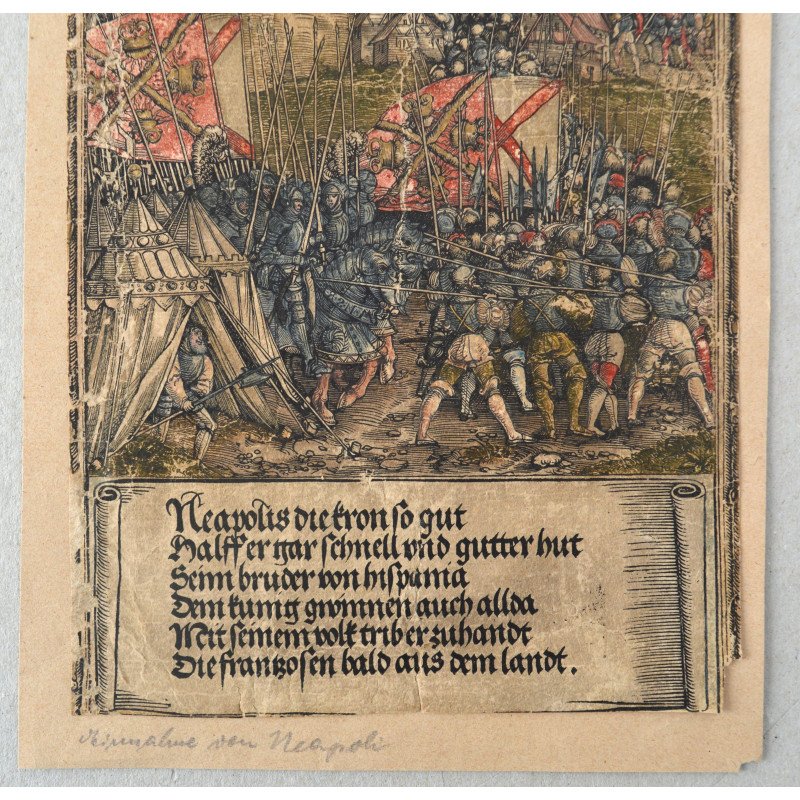 Neapolis die kron so gut
Halff er gar schnell vnd gutter hut
Seim bruder von hispania
Dem kunig gwinnen auch allda
Mit seinem volk trib er zuhandt
Die frantzosen bald aus dem landt.
Einnahme von Neapoli